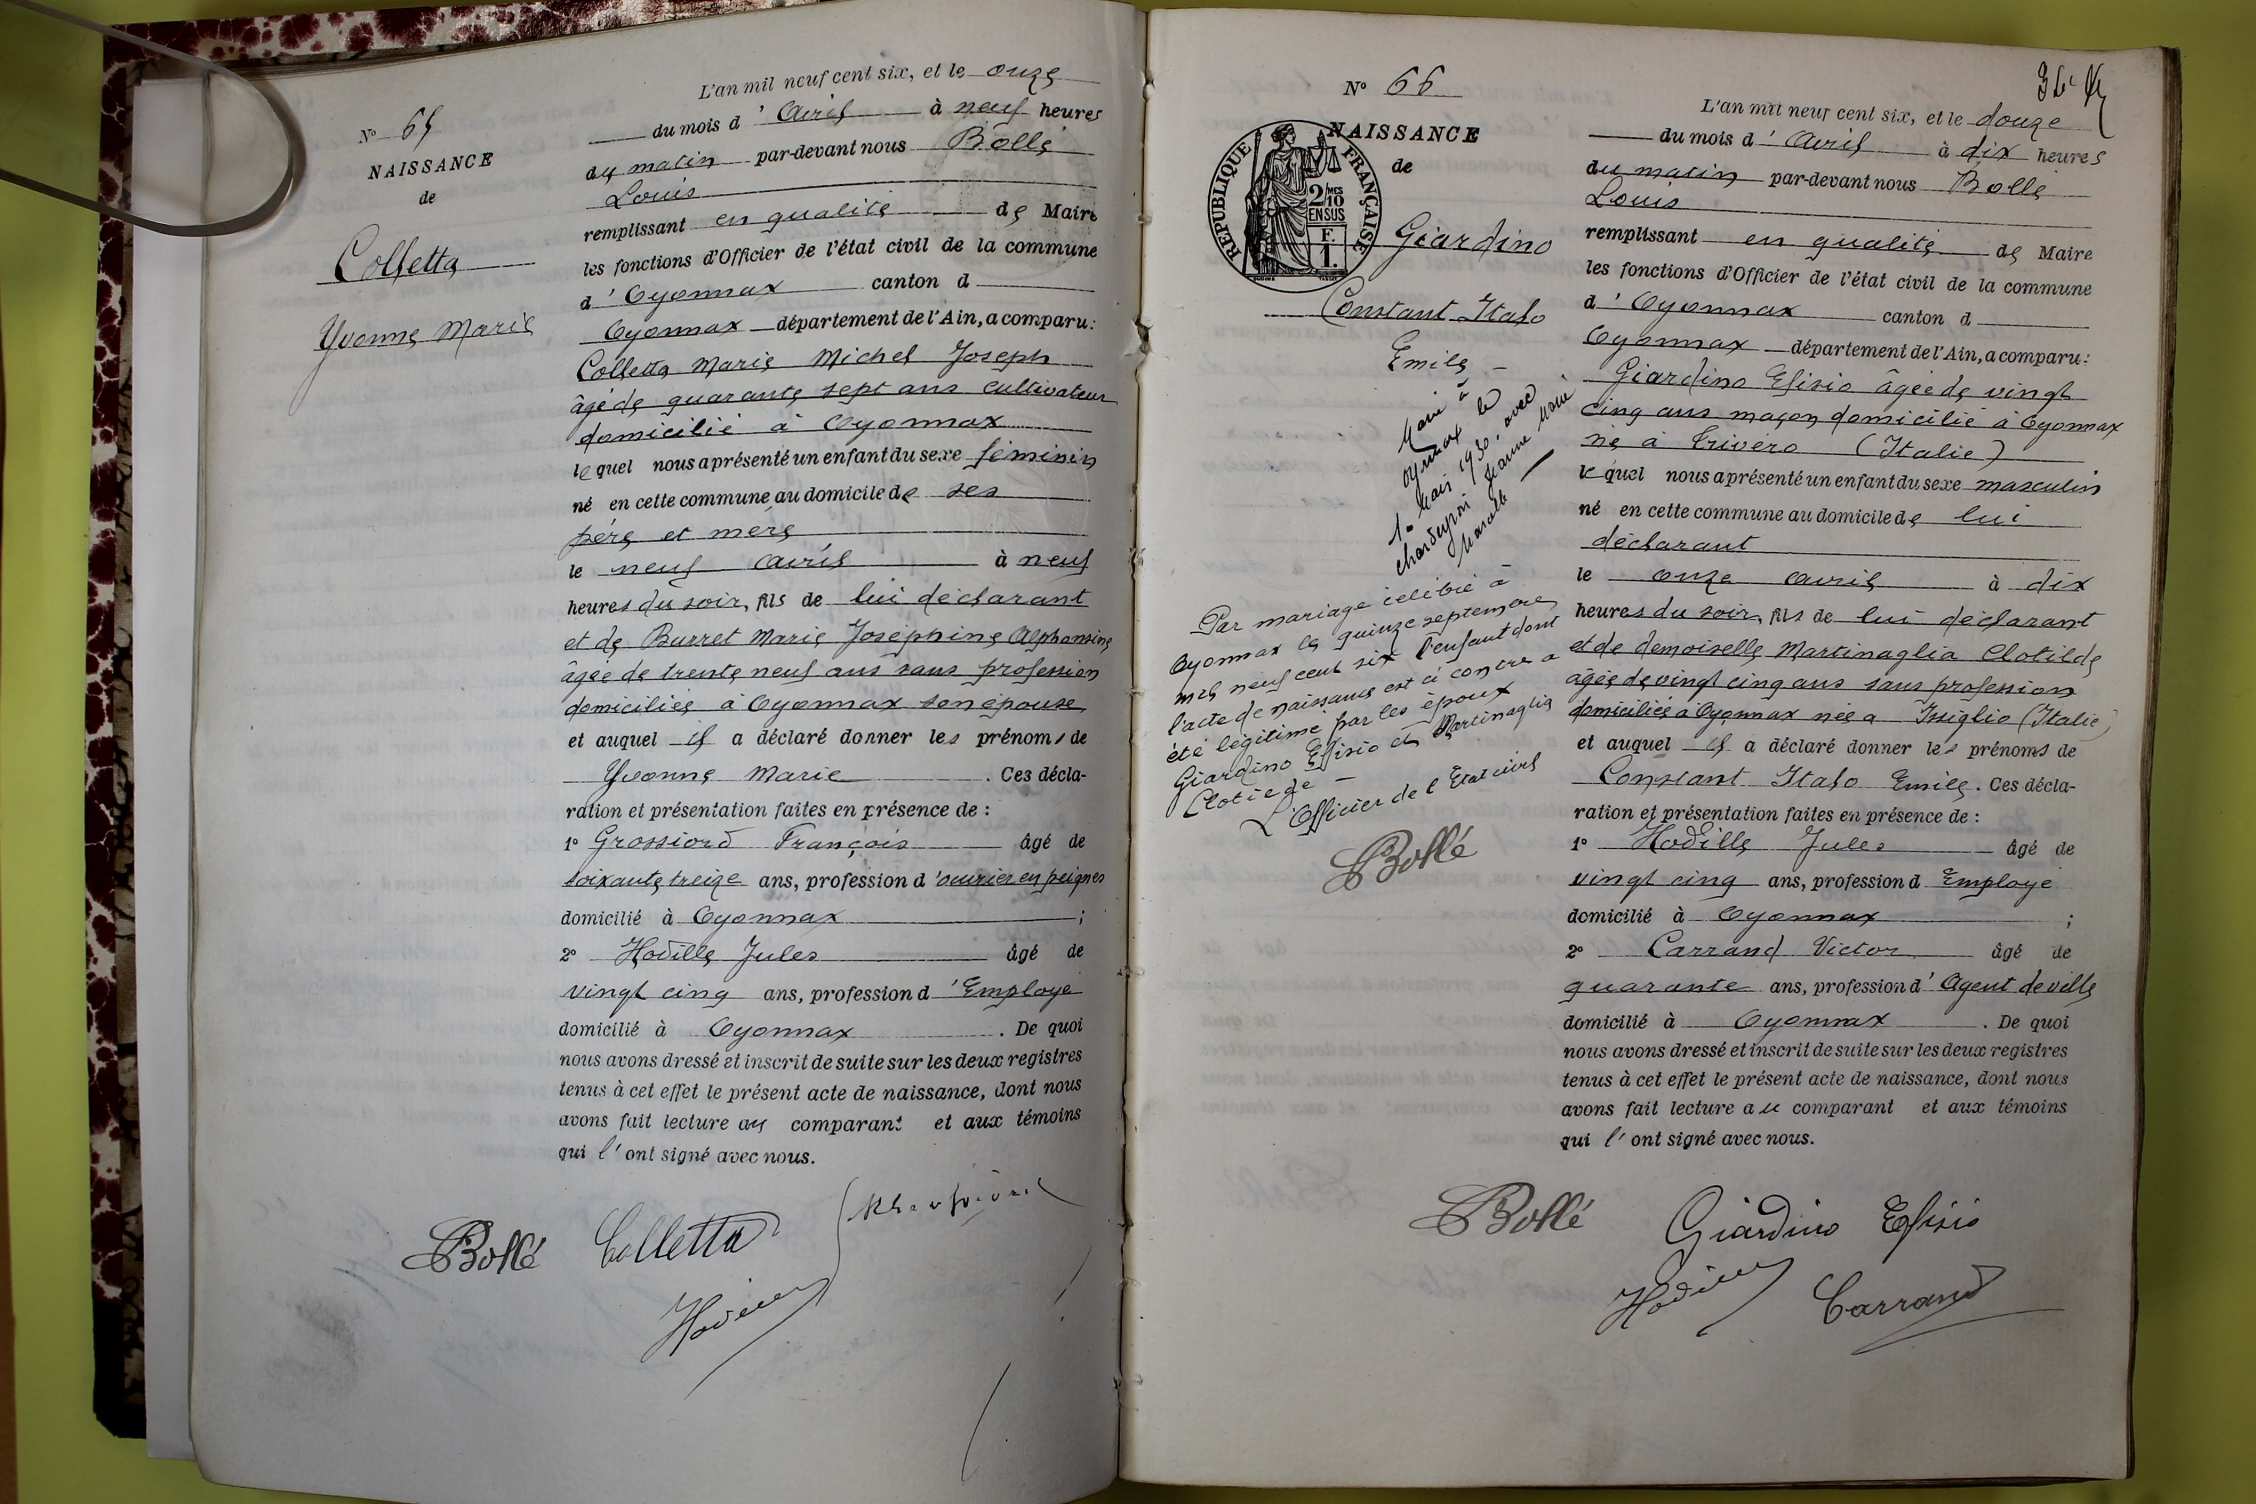 L'an mil neuf cent six, et le onze
N° 65
du mois d' Avril à neuf heures
NAISSANCE
du matin par-devant nous Bollé
de
Louis
remplissant en qualité de Maire
les fonctions d'Officier de l'état civil de la commune
Colletta
d' Oyonnax canton d
Yvonne Marie
Oyonnax département de l'Ain, a comparu:
Colletta Marie Michel Joseph
âgé de quarante sept ans cultivateur
domicilié à Oyonnax
lequel nous a présenté un enfant du sexe féminin
né en cette commune au domicile de ses
père et mère
le neuf avril à neuf
heures du soir, fils de lui déclarant
et de Burret Marie Joséphine Alphonsine
âgée de trente neuf ans sans profession
domiciliée à Oyonnax son épouse
et auquel il a déclaré donner les prénoms de
Yvonne Marie. Ces décla-
ration et présentation faites en présence de :
1° Grossiord François âgé de
soixante treize ans, profession d'ouvrier en peignes
domicilié à Oyonnax ;
2° Hodille Jules âgé de
vingt cinq ans, profession d'Employé
domicilié à Oyonnax. De quoi
nous avons dressé et inscrit de suite sur les deux registres
tenus à cet effet le présent acte de naissance, dont nous
avons fait lecture au comparant et aux témoins
qui l'ont signé avec nous.
Bollé Colletta
Hodille
N° 66
L'an mil neuf cent six, et le douze
NAISSANCE
du mois d' Avril à dix heures
de
du matin par-devant nous Bollé
Louis
RÉPUBLIQUE FRANÇAISE
2/10 MES
EN SUS
F.
1.
Giardino
remplissant en qualité de Maire
les fonctions d'Officier de l'état civil de la commune
Constant Italo
d' Oyonnax canton d
Emile
Oyonnax département de l'Ain, a comparu:
Giardino Efisio âgé de vingt
cinq ans maçon domicilié à Oyonnax
né à Trivero (Italie)
lequel nous a présenté un enfant du sexe masculin
né en cette commune au domicile de lui
déclarant
le onze avril à dix
heures du soir, fils de lui déclarant
et de demoiselle Martinaglia Clotilde
âgée de vingt cinq ans sans profession
domiciliée à Oyonnax née à Issiglio (Italie)
et auquel il a déclaré donner les prénoms de
Constant Italo Emile. Ces décla-
ration et présentation faites en présence de :
1° Hodille Jules âgé de
vingt cinq ans, profession d Employé
domicilié à Oyonnax ;
2° Carrand Victor âgé de
quarante ans, profession d'Agent de ville
domicilié à Oyonnax. De quoi
nous avons dressé et inscrit de suite sur les deux registres
tenus à cet effet le présent acte de naissance, dont nous
avons fait lecture au comparant et aux témoins
qui l'ont signé avec nous.
Marié à
Oyonnax le
1930, avec
Jeanne Marie
Par mariage célébré à
Oyonnax le quinze septembre
mil neuf cent six l'enfant dont
l'acte de naissance est ci contre a
été légitimé par les époux
Giardino Efisio et Martinaglia
Clotilde
L'Officier de l'Etat civil
Bollé
Bollé Giardino Efisio
Hodille Carrand